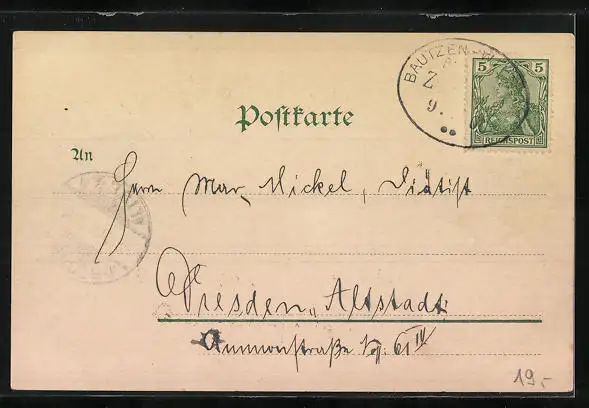 BAUTZEN
Z
9.
5 5
REICHSPOST
Postkarte
An
Herrn Max Nickel, Diätist
Dresden-Altstadt
Ammonstraße 61 IV
19.-